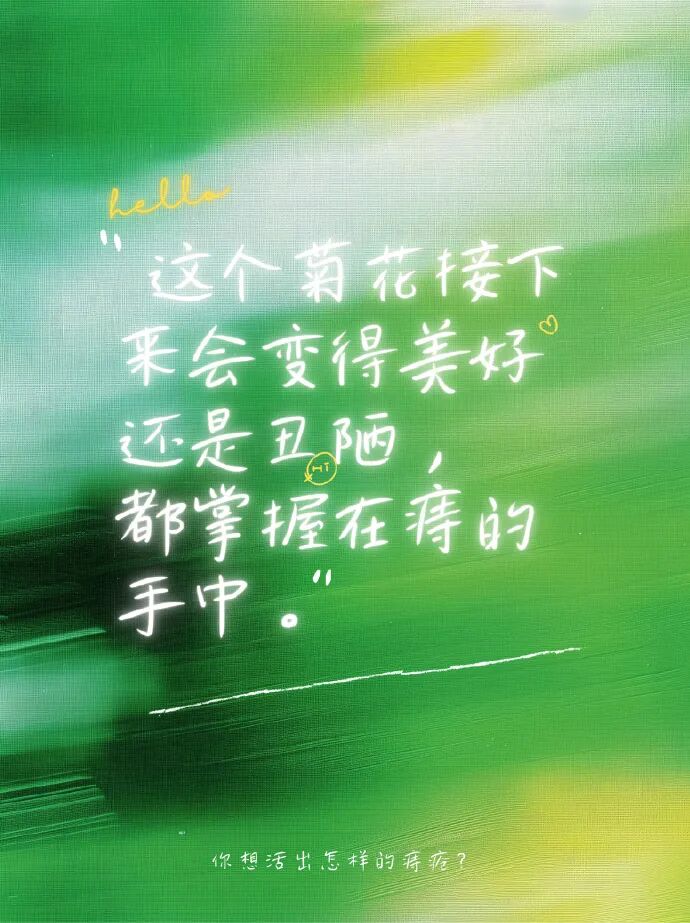 hello
"这个菊花接下
来会变得美好
还是丑陋，
HI
都掌握在痔的
手中。"
你想活出怎样的痔疮？